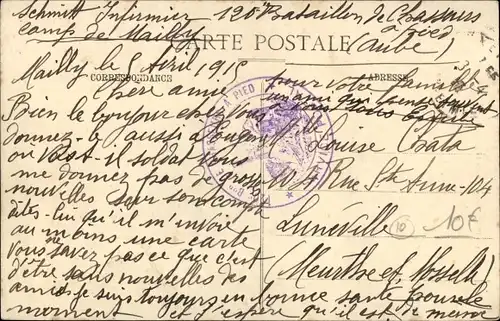 Schmitt Infirmier 120 Bataillon de Chasseurs
à Pied
Camp de Mailly (Aube)
CARTE POSTALE
Mailly le 5 Avril 1915
CORRESPONDANCE
ADRESSE
Chère amie
Bien le bonjour chez vous
donnez-le aussi à
où est-il soldat vous
me donnez pas de
nouvelles sur son compte
dites-lui qu'il m'envoie
au moins une carte
Vous ne savez pas ce que c'est
d'être sans nouvelles des
amis je suis toujours en bonne santé pour le
moment et j'espère qu'il est de même
pour votre famille
un ami qui pense souvent
à vous
A PIED
Mlle Louise Bata
104 Rue Ste Anne-104
Lunéville
(Meurthe et Moselle)
10
10F